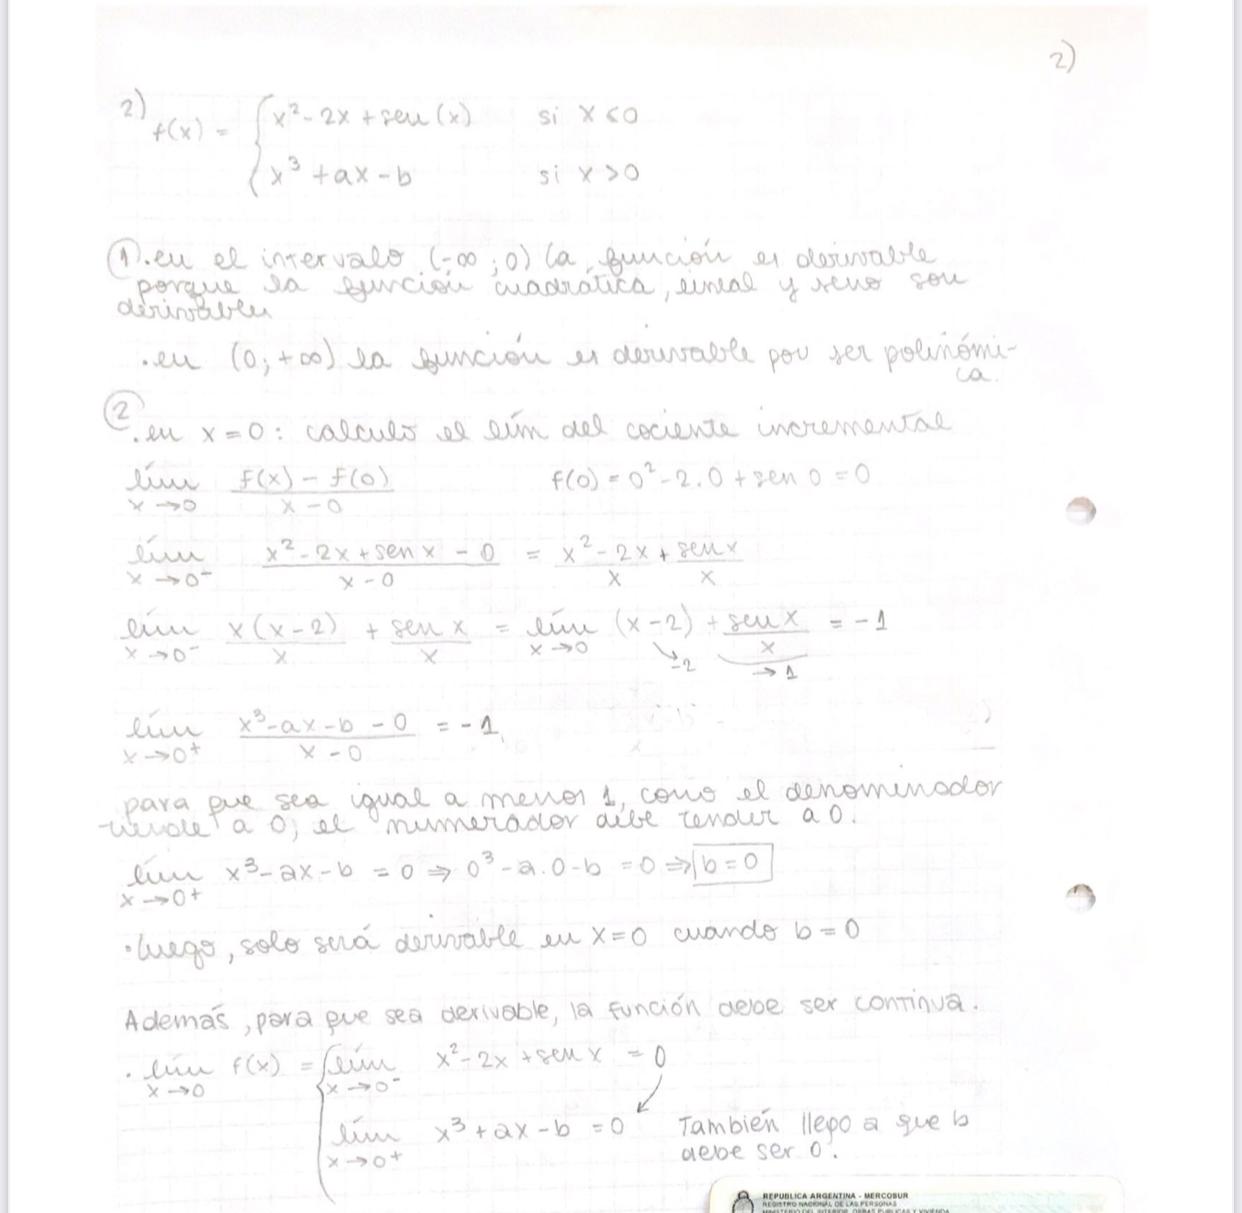 2)
2) f(x) = { x² - 2x + sen (x) si x < 0
x³ + ax - b si x > 0
① . en el intervalo (-∞ ; 0) la función es derivable
porque la función cuadrática, lineal y seno son
derivables
. en (0; +∞) la función es derivable por ser polinómi-
ca.
②
. en x = 0 : calculo el lím del cociente incremental
lím x→0 (f(x) - f(0))/(x - 0) f(0) = 0² - 2.0 + sen 0 = 0
lím x→0⁻ (x² - 2x + sen x - 0)/(x - 0) = (x² - 2x)/x + (sen x)/x
lím x→0⁻ x(x - 2)/x + (sen x)/x = lím x→0 (x - 2) + (sen x)/x = -1
→ -2 → 1
lím x→0⁺ (x³ - ax - b - 0)/(x - 0) = -1
para que sea igual a menos 1, como el denominador
tiende a 0, el numerador debe tender a 0.
lím x→0⁺ x³ - ax - b = 0 ⇒ 0³ - a.0 - b = 0 ⇒ b = 0
. Luego, solo será derivable en x = 0 cuando b = 0
Además, para que sea derivable, la función debe ser continua.
. lím x→0 f(x) = { lím x→0⁻ x² - 2x + sen x = 0
lím x→0⁺ x³ + ax - b = 0 También llego a que b
debe ser 0.
REPUBLICA ARGENTINA - MERCOSUR
REGISTRO NACIONAL DE LAS PERSONAS
MINISTERIO DEL INTERIOR, OBRAS PUBLICAS Y VIVIENDA